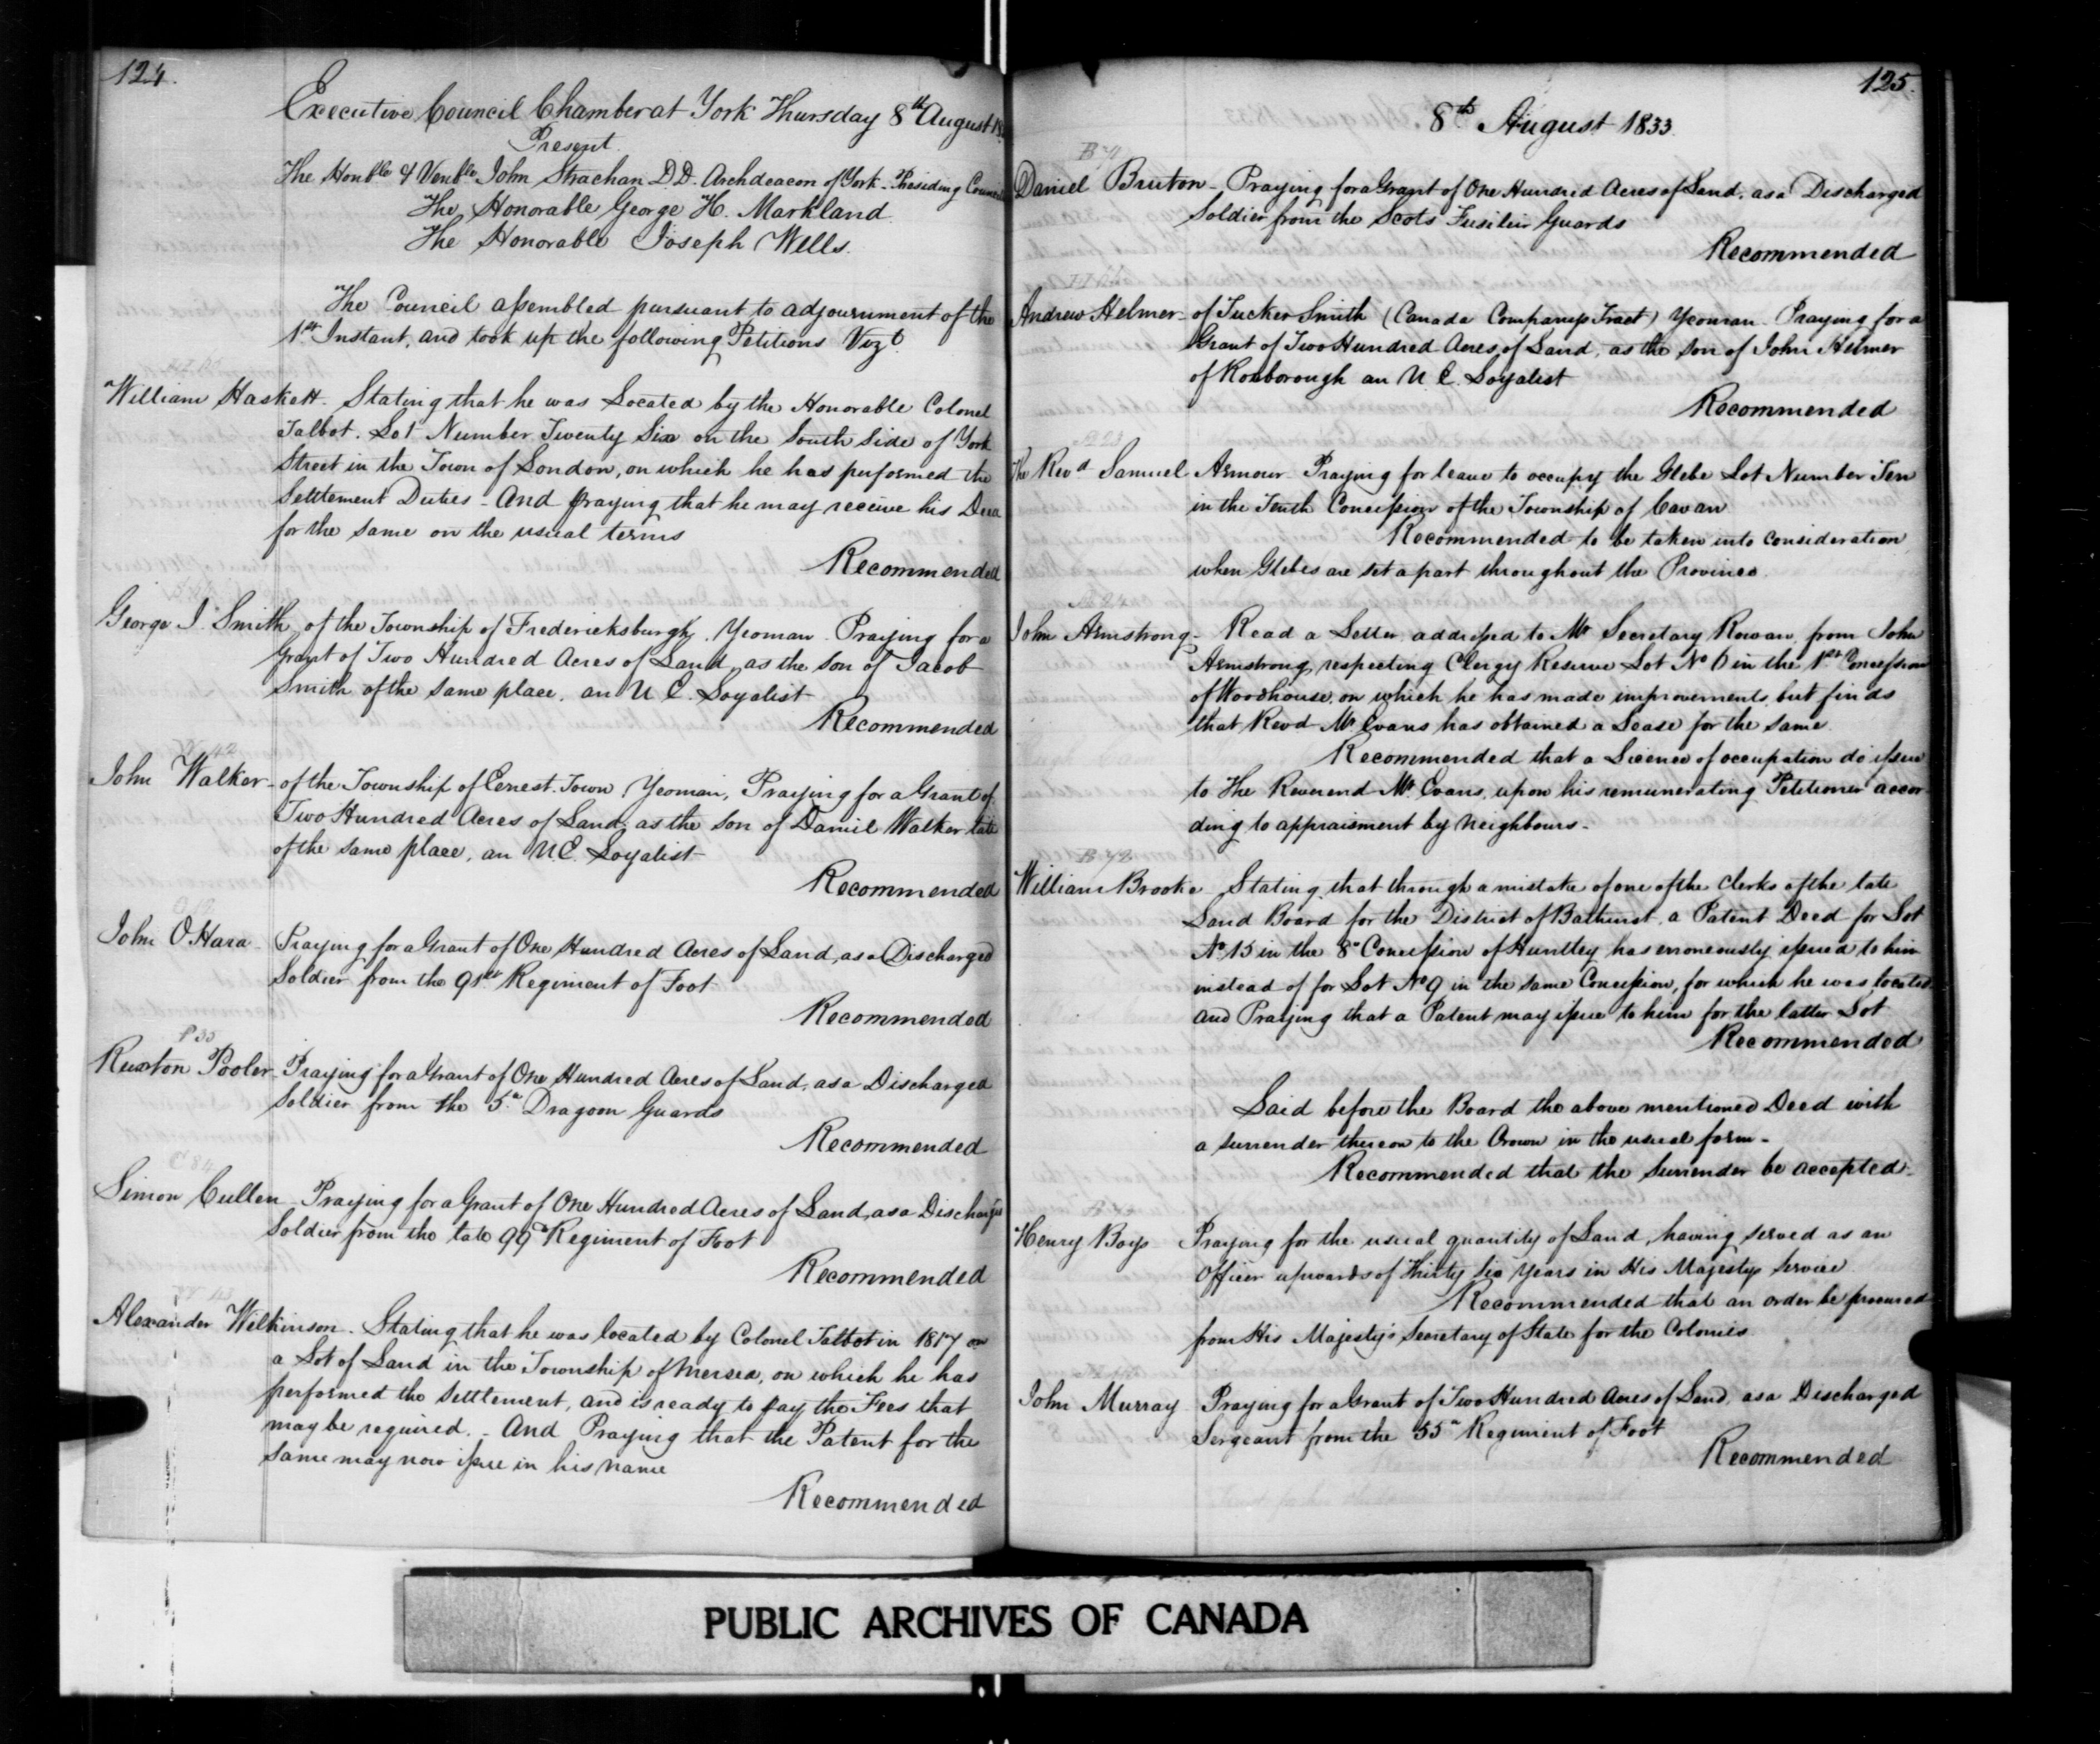 124.
Executive Council Chamber at York Thursday 8th August
Present
The Honble & Venble John Strachan D.D. Archdeacon of York Presiding
The Honorable George H. Markland
The Honorable Joseph Wells.
The Council assembled pursuant to adjournment of the
1st Instant, and took up the following Petitions Vizt
William Haskett. Stating that he was Located by the Honorable Colonel
Talbot. Lot Number Twenty Six on the South Side of York
Street in the Town of London, on which he has performed the
Settlement Duties - And praying that he may receive his Deed
for the same on the usual terms
Recommended
George I. Smith, of the Township of Fredericksburgh, Yeoman. Praying for a
Grant of Two Hundred Acres of Land, as the son of Jacob
Smith of the same place, an U E. Loyalist
Recommended
W 42
John Walker - of the Township of Ernest Town, Yeoman, Praying for a Grant of
Two Hundred Acres of Land as the son of Daniel Walker late
of the same place, an U E. Loyalist
Recommended
John O'Hara - Praying for a Grant of One Hundred Acres of Land, as a Discharged
Soldier from the 91st Regiment of Foot
Recommended
P 35
Ruxton Pooler - Praying for a Grant of One Hundred Acres of Land, as a Discharged
Soldier from the 5th Dragoon Guards
Recommended
C 84
Simon Cullen - Praying for a Grant of One Hundred Acres of Land, as a Discharged
Soldier from the late 99th Regiment of Foot
Recommended
Alexander Wilkinson. Stating that he was located by Colonel Talbot in 1817 on
a Lot of Land in the Township of Mersea, on which he has
performed the settlement, and is ready to pay the Fees that
may be required. - And Praying that the Patent for the
same may now issue in his name
Recommended
125.
8th August 1833
B 71
Daniel Bruton - Praying for a Grant of One Hundred Acres of Land, as a Discharged
Soldier from the Scots Fusilier Guards
Recommended
Andrew Helmer - of Tucker Smith (Canada Companys Tract) Yeoman. Praying for a
Grant of Two Hundred Acres of Land, as the son of John Helmer
of Roxborough an U E. Loyalist
Recommended
A 23
The Revd Samuel Armour Praying for leave to occupy the Glebe Lot Number Ten
in the Tenth Concession of the Township of Cavan
Recommended to be taken into consideration
when Glebes are set apart throughout the Province.
A 24
John Armstrong - Read a Letter addressed to Mr Secretary Rowan, from John
Armstrong, respecting Clergy Reserve Lot No 6 in the 1st Concession
of Woodhouse, on which he has made improvements, but finds
that Revd Mr Evans has obtained a Lease for the same.
Recommended that a Licence of occupation do issue
to The Reverend Mr. Evans, upon his remunerating Petitioner accor-
ding to appraisment by Neighbours -
B 72
William Brooke Stating that through a mistake of one of the Clerks of the late
Land Board for the District of Bathurst, a Patent Deed for Lot
No 15 in the 8th Concession of Huntley has erroneously issued to him
instead of for Lot No 9 in the same Concession, for which he was located
and Praying that a Patent may issue to him for the latter Lot
Recommended
Laid before the Board the above mentioned Deed with
a surrender thereon to the Crown in the usual form -
Recommended that the Surrender be accepted -
Henry Boys Praying for the usual quantity of Land, having served as an
Officer upwards of Thirty Six Years in His Majestys Service
Recommended that an order be procured
from His Majesty's Secretary of State for the Colonies
John Murray Praying for a Grant of Two Hundred Acres of Land, as a Discharged
Sergeant from the 55th Regiment of Foot
Recommended
PUBLIC ARCHIVES OF CANADA